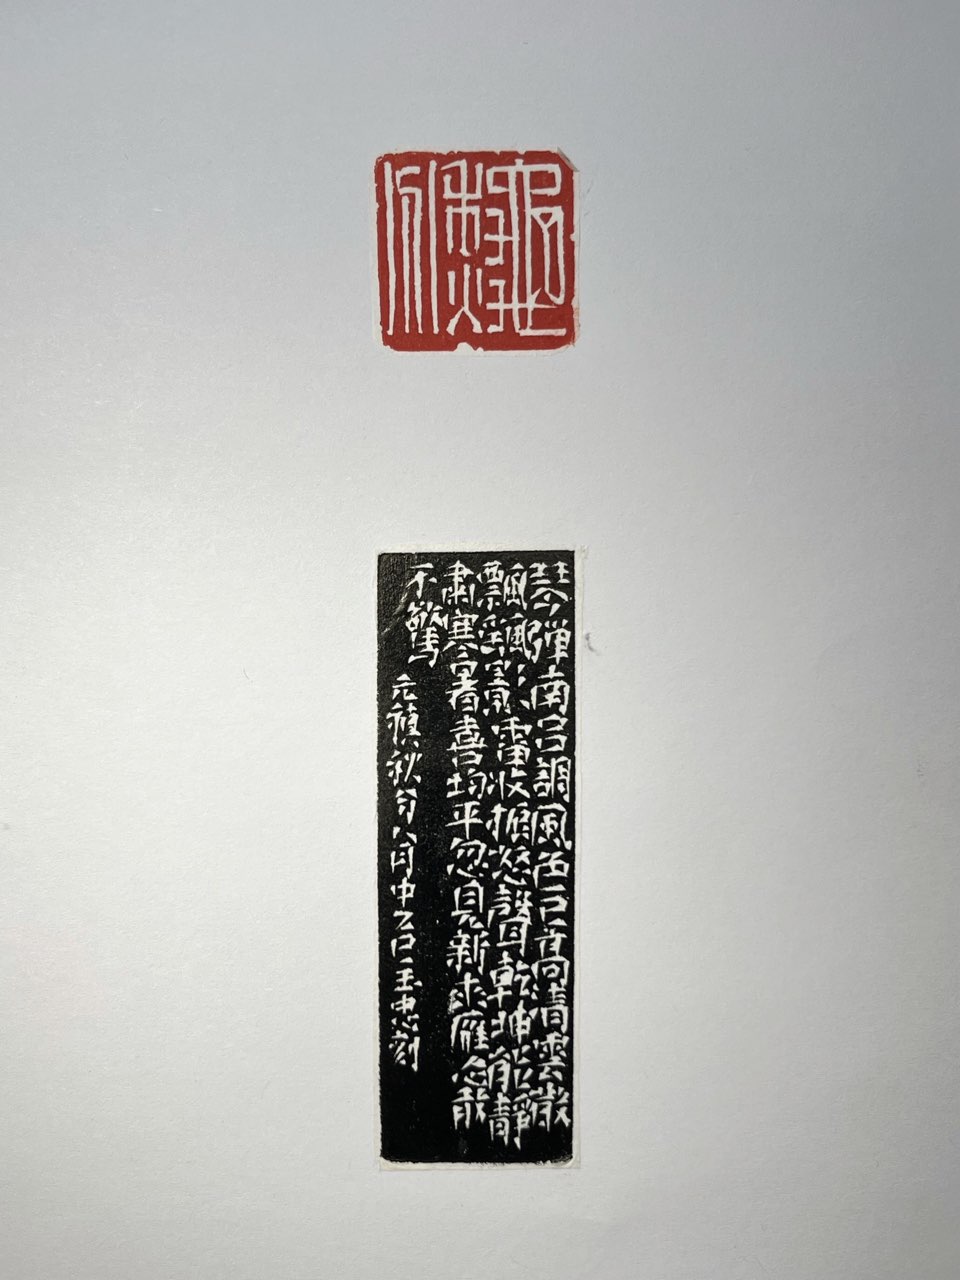 秋分
琴彈南呂調風色已高清雲散
飄飖影雷收振怒聲乾坤能靜
肅寒暑喜均平忽見新來雁人心敢
不驚
元稹秋分八月中乙巳王忠刻